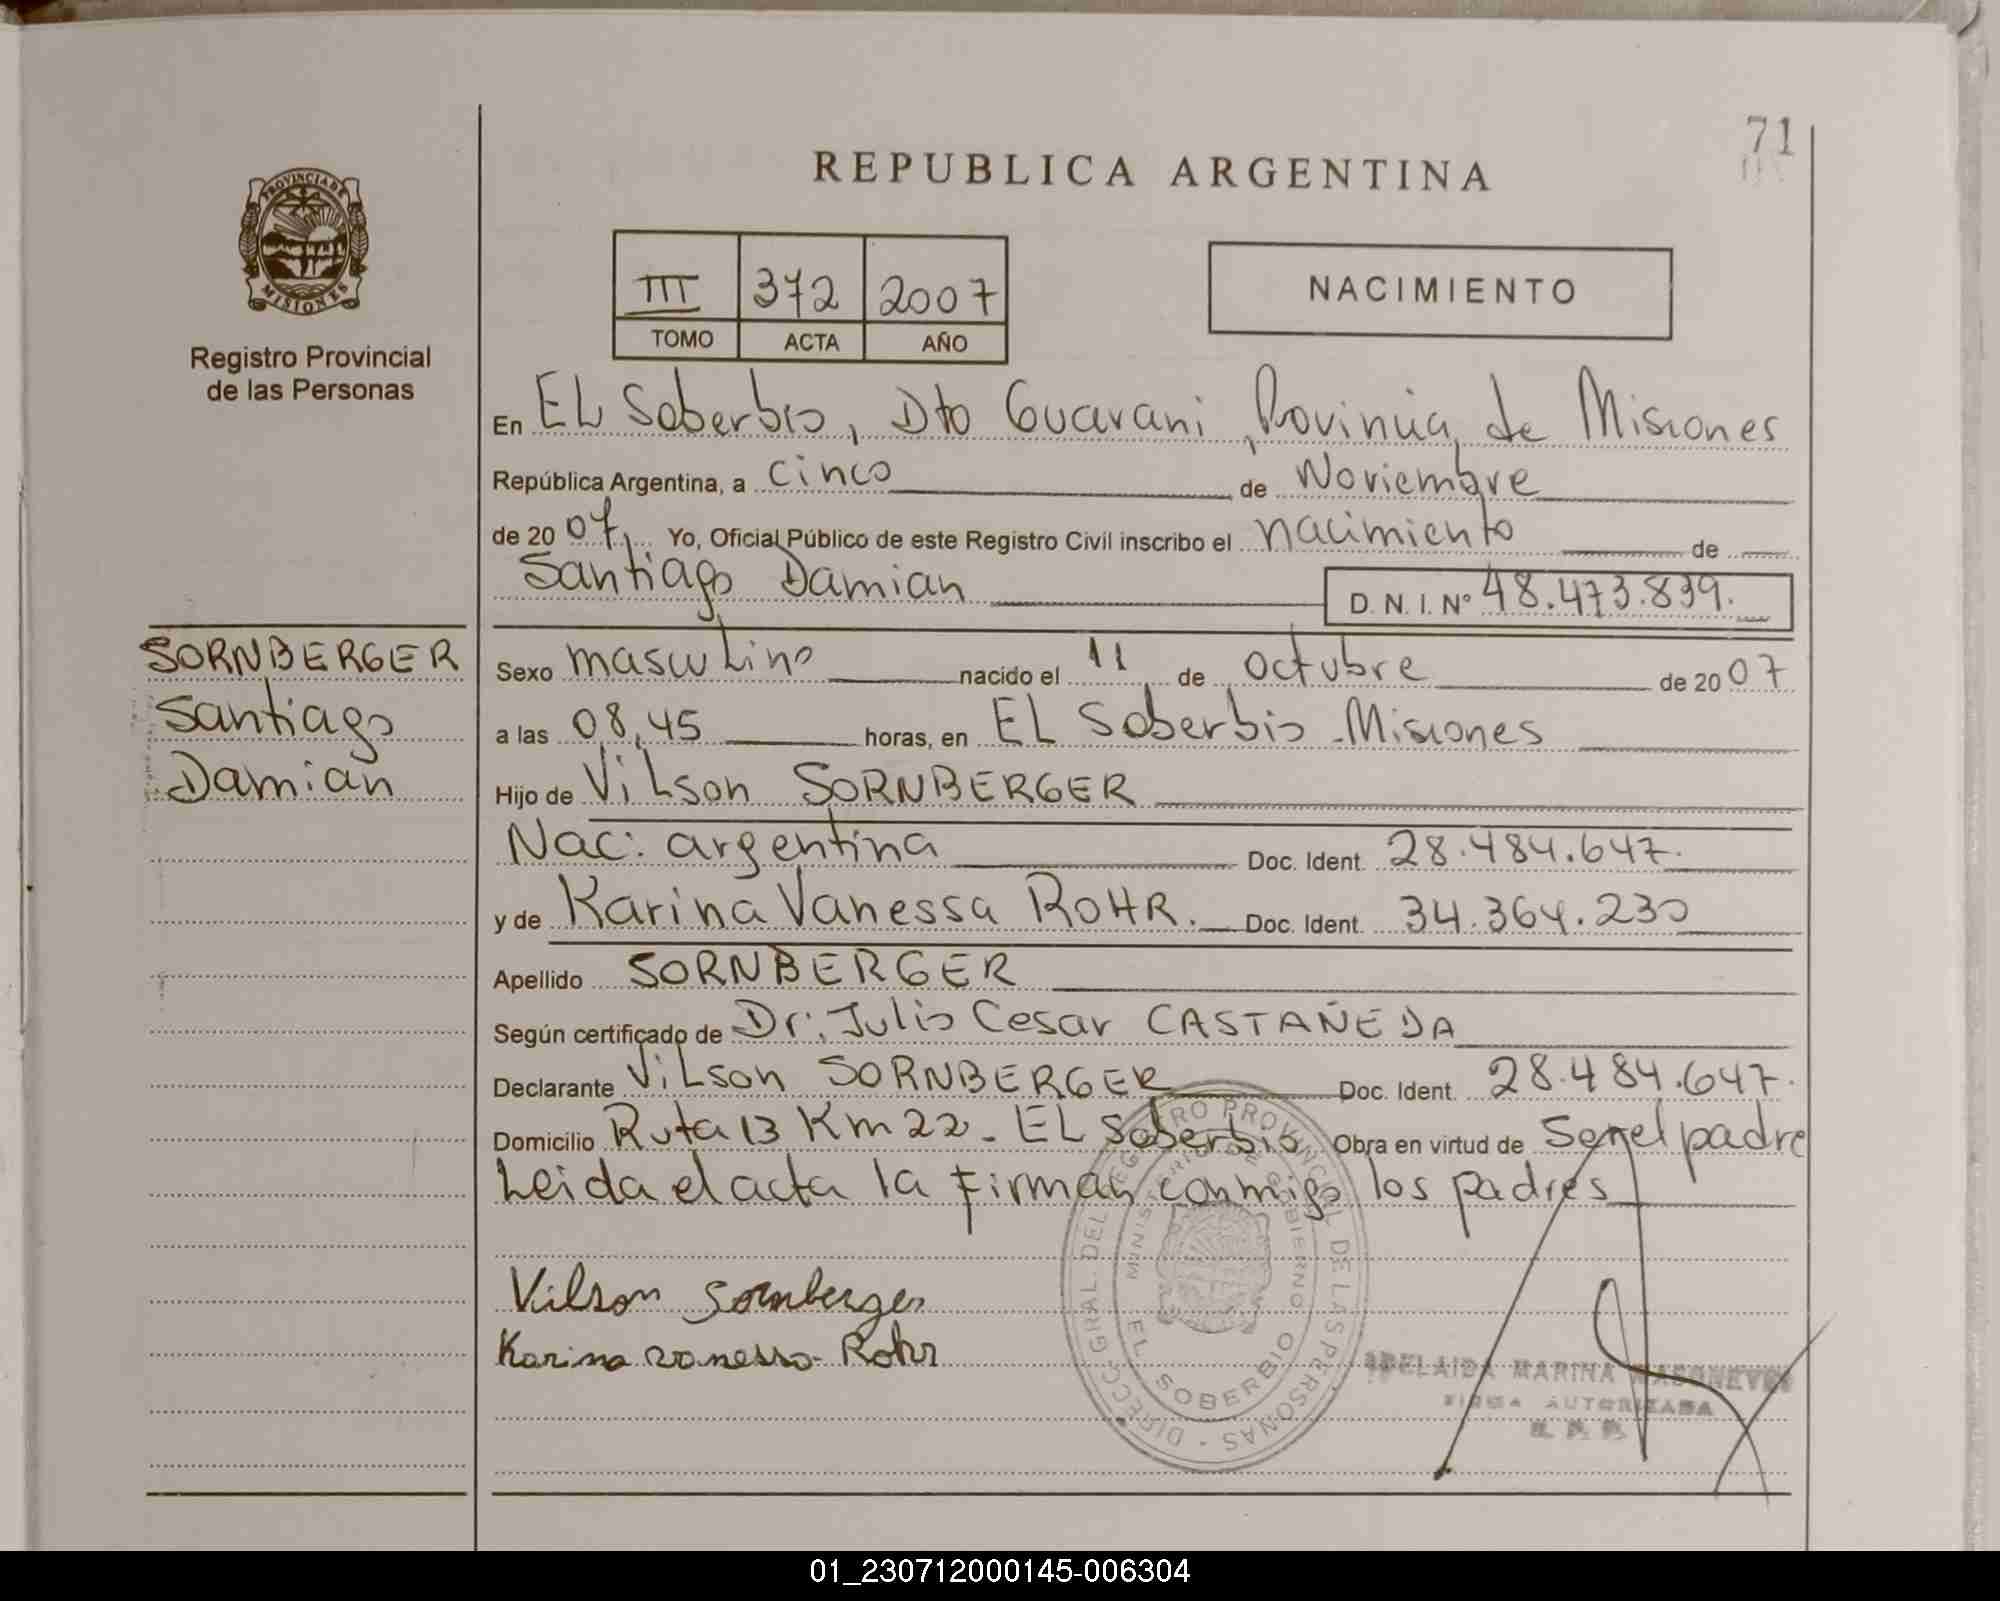 71
REPUBLICA ARGENTINA
PROVINCIA DE
MISIONES
Registro Provincial
de las Personas
III 372 2007
TOMO ACTA AÑO
NACIMIENTO
En EL Soberbio, Dto Guarani, Provincia de Misiones
República Argentina, a cinco de Noviembre
de 2007. Yo, Oficial Público de este Registro Civil inscribo el nacimiento de
Santiago Damian D. N. I. Nº 48.473.839.
SORNBERGER
Santiago
Damian
Sexo masculino nacido el 11 de octubre de 2007
a las 08,45 horas, en EL Soberbio - Misiones
Hijo de Vilson SORNBERGER
Nac: argentina Doc. Ident. 28.484.647.
y de Karina Vanessa ROHR. Doc. Ident. 34.364.230
Apellido SORNBERGER
Según certificado de Dr: Julio Cesar CASTAÑEDA
Declarante Vilson SORNBERGER Doc. Ident. 28.484.647.
Domicilio Ruta 13 Km 22 - EL Soberbio Obra en virtud de Ser el padre
Leida el acta la firman conmigo los padres
Vilson Sornberger
Karina vanessa Rohr
DIRECC. GRAL. DEL REGISTRO PROVINCIAL DE LAS PERSONAS -
MINISTERIO DE GOBIERNO
EL SOBERBIO
ADELAIDA MARINA
FIRMA AUTORIZADA
01_230712000145-006304